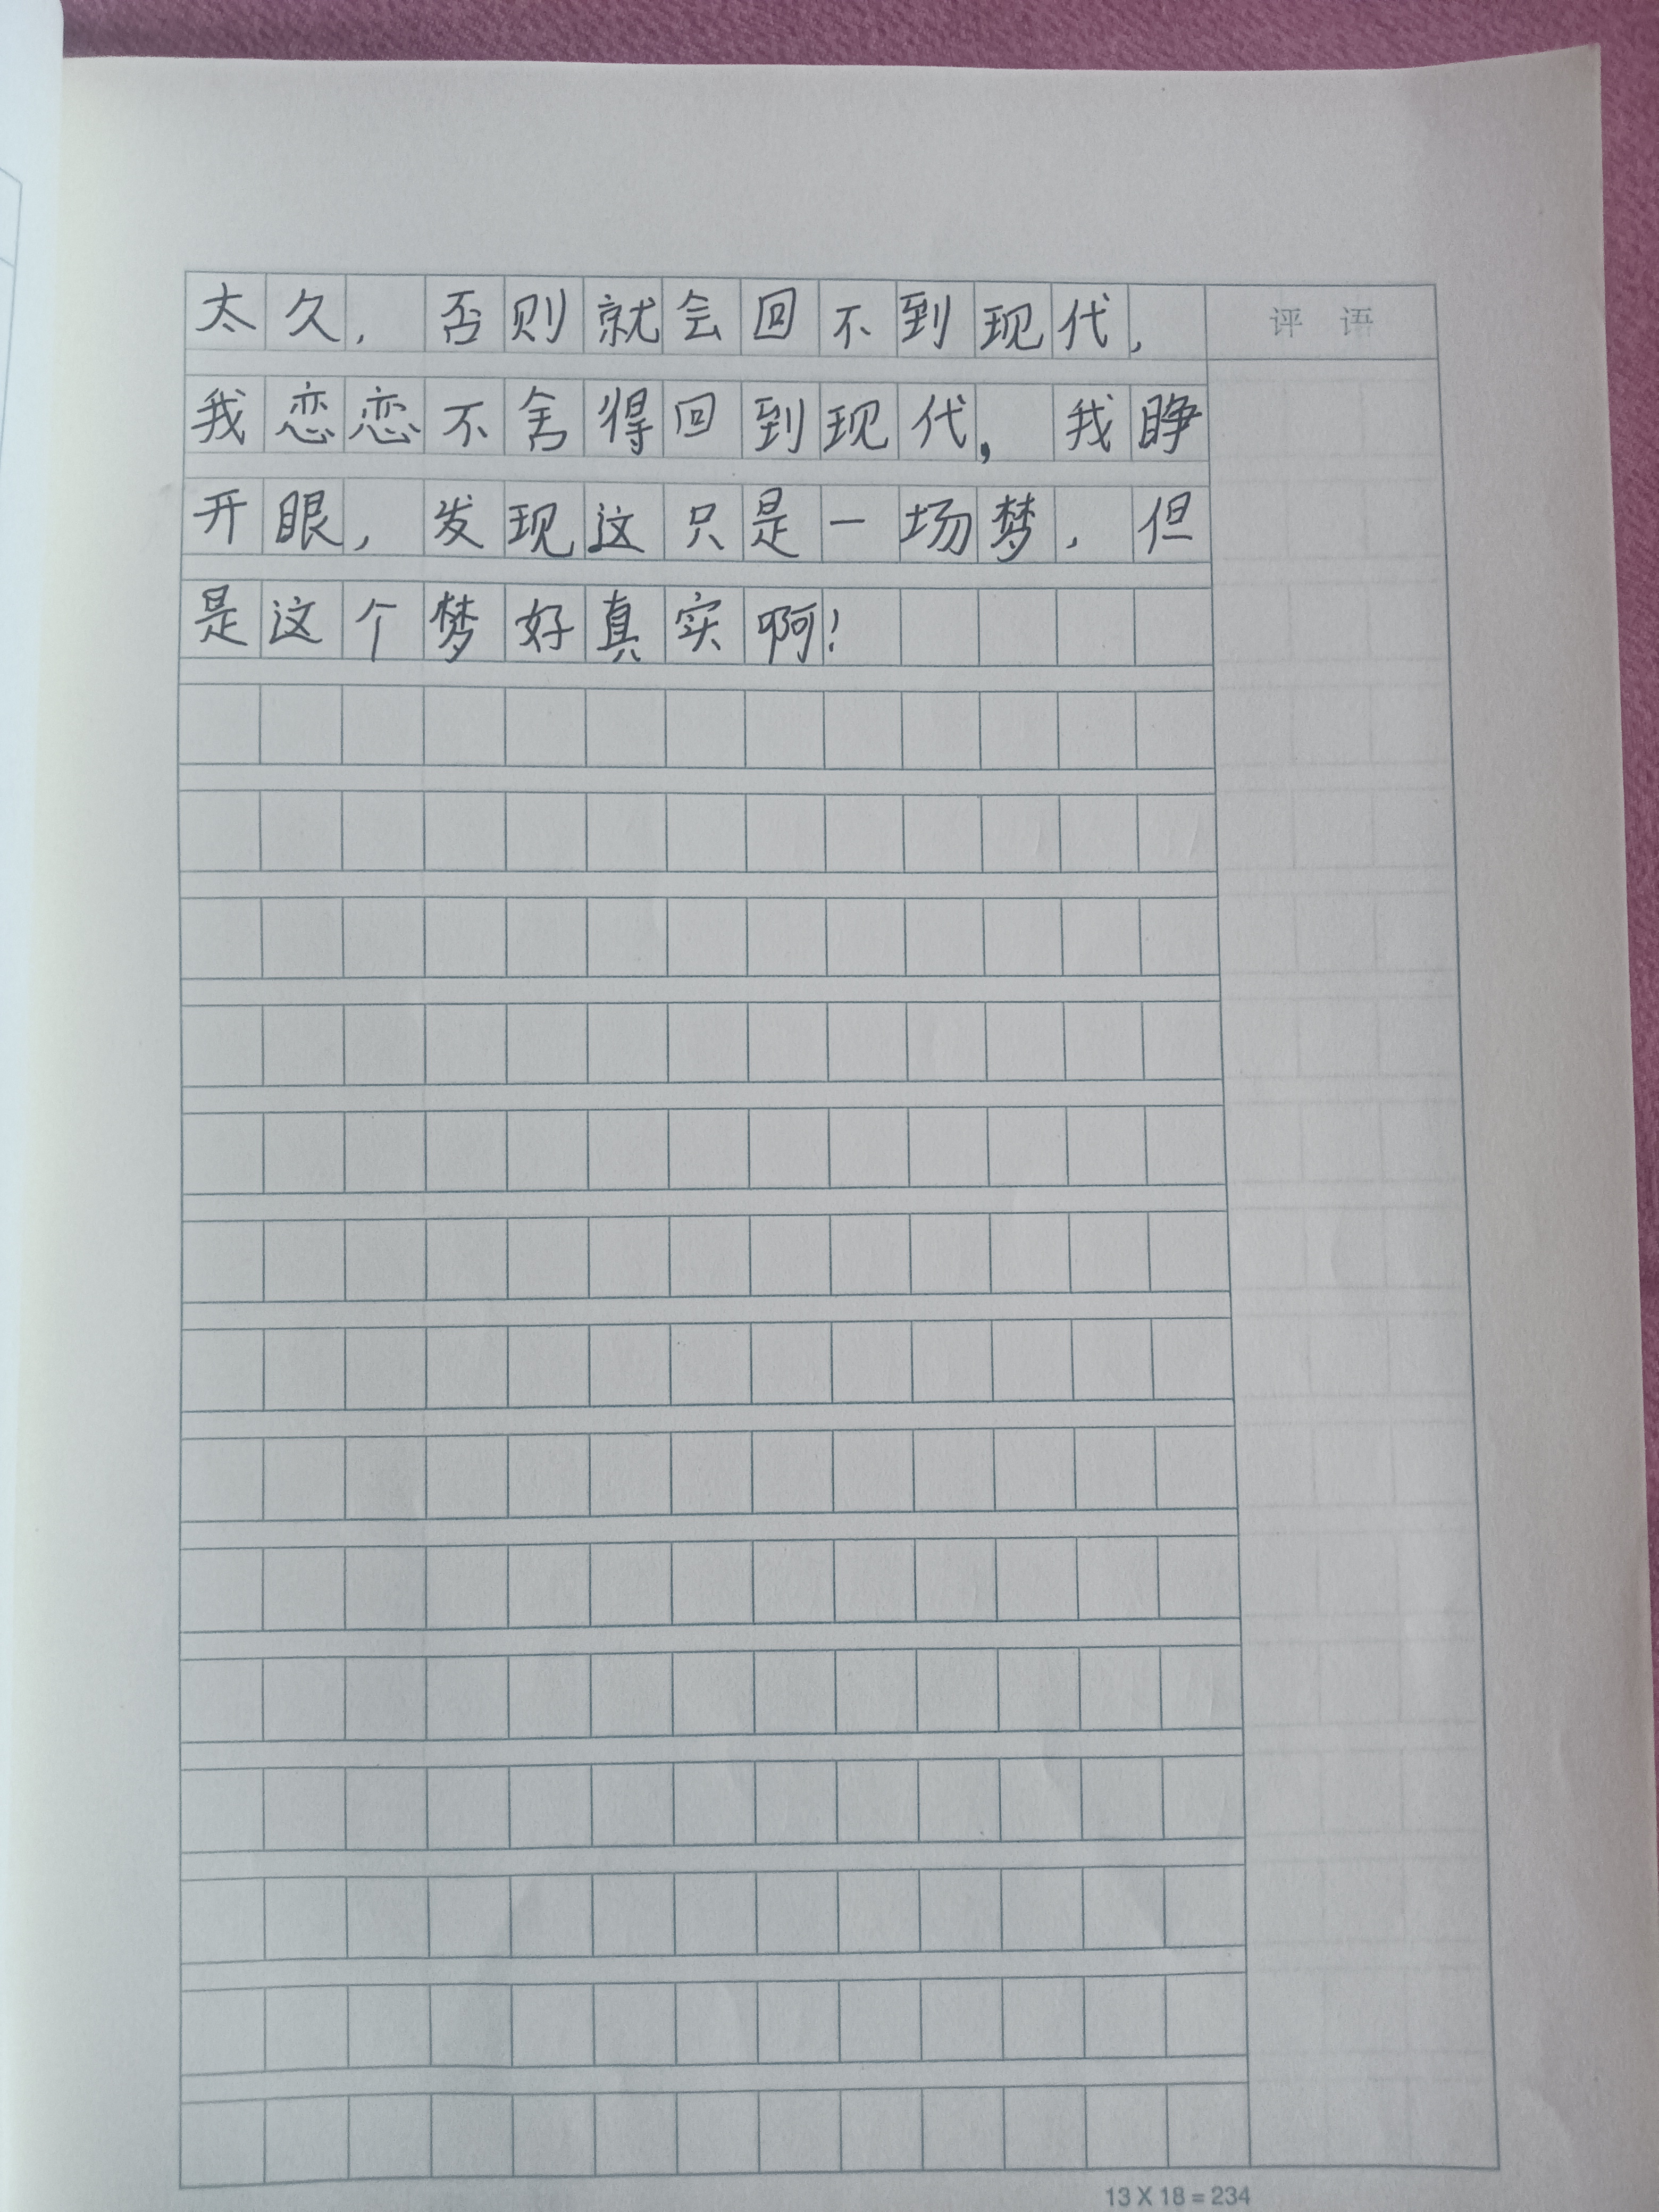 太久，否则就会回不到现代，
我恋恋不舍得回到现代，我睁
开眼，发现这只是一场梦，但
是这个梦好真实啊！
评 语
13 X 18 = 234